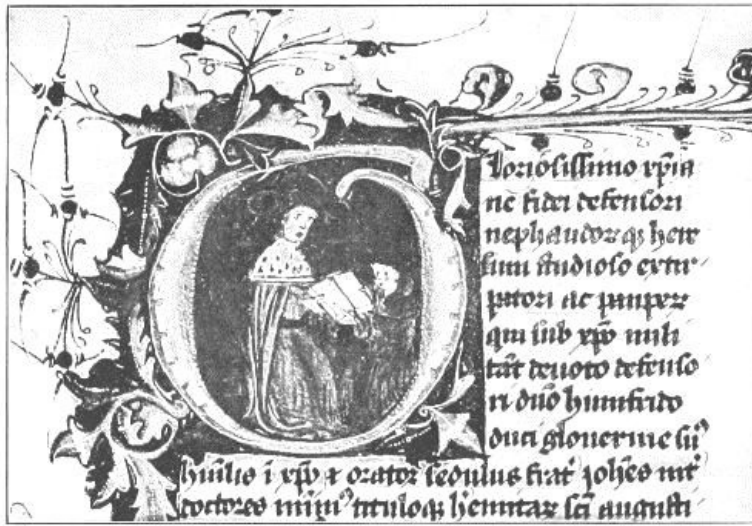 Gloriosissimo xp̄ia
ne fidei defensori
nephandoꝝ qꝫ here
sum studioso extir-
patori ac pauperꝝ
qui sub xpō mili
tāt deuoto defenso
ri dūo humfrido
duci glouernie suꝰ
humilis ī xpō ⁊ orator sedulus frat̄ joh̄es īt̄
doctores minimꝰ h̄emitaꝝ sc̄i augusti